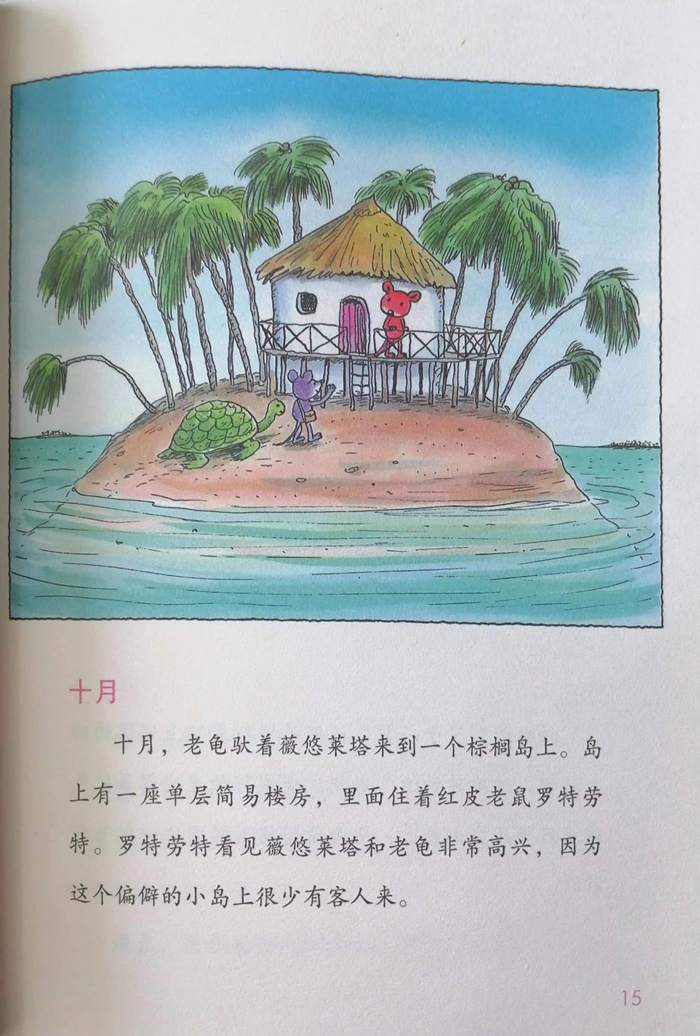 十月
十月，老龟驮着薇悠莱塔来到一个棕榈岛上。岛
上有一座单层简易楼房，里面住着红皮老鼠罗特劳
特。罗特劳特看见薇悠莱塔和老龟非常高兴，因为
这个偏僻的小岛上很少有客人来。
15